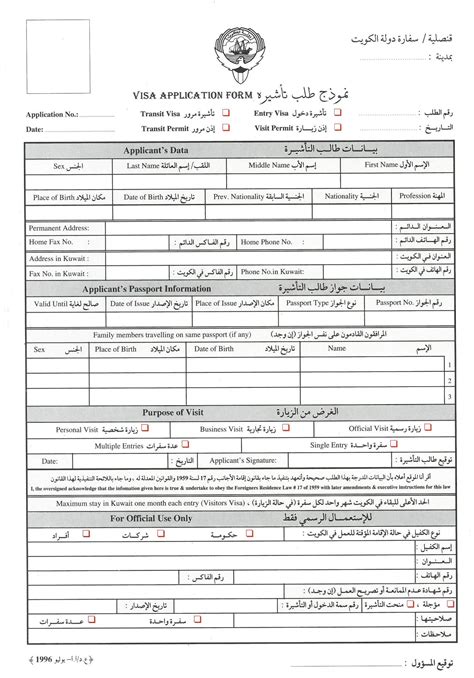 قنصلية / سفارة دولة الكويت
بمدينة :
VISA APPLICATION FORM نموذج طلب تأشيرة
Application No.: Transit Visa تأشيرة مرور Entry Visa تأشيرة دخول رقم الطلب :
Date: Transit Permit إذن مرور Visit Permit إذن زيارة التاريخ :
Applicant's Data بيانات طالب التأشيرة
Sex الجنس Last Name اللقب/ إسم العائلة Middle Name إسم الأب First Name الإسم الأول
Place of Birth مكان الميلاد Date of Birth تاريخ الميلاد Prev. Nationality الجنسية السابقة Nationality الجنسية Profession المهنة
Permanent Address: العنوان الدائم :
Home Fax No. : رقم الفاكس الدائم : Home Phone No. : رقم الهاتف الدائم :
Address in Kuwait : العنوان في الكويت :
Fax No. in Kuwait : رقم الفاكس في الكويت : Phone No.in Kuwait: رقم الهاتف في الكويت :
Applicant's Passport Information بيانات جواز طالب التأشيرة
Valid Until صالح لغاية Date of Issue تاريخ الإصدار Place of Issue مكان الإصدار Passport Type نوع الجواز Passport No. رقم الجواز
Family members travelling on same passport (if any) المرافقون القادمون على نفس الجواز (إن وجد)
Sex الجنس Place of Birth مكان الميلاد Date of Birth تاريخ الميلاد Name الإسم
1
2
3
Purpose of Visit الغرض من الزيارة
Personal Visit زيارة شخصية Business Visit زيارة تجارية Official Visit زيارة رسمية
Multiple Entries عدة سفرات Single Entry سفرة واحدة
Date: التاريخ : Applicant's Signature: توقيع طالب التأشيرة :
أقر أنا الموقع أعلاه بأن البيانات المدرجة بهذا الطلب صحيحة وأتعهد بالتقيد بما جاء بقانون إقامة الأجانب رقم 17 لسنة 1959 والقوانين المعدلة له ، وبما جاء باللائحة التنفيذية لهذا القانون
I, the oversigned acknowledge that the infomation given here is true & undertake to obey the Foreigners Residence Law # 17 of 1959 with later amendments & executive instructions for this law
Maximum stay in Kuwait one month each entry (Visitors Visa) الحد الأعلى للبقاء في الكويت شهر واحد لكل سفرة (في حالة الزيارة) ،
For Official Use Only للإستعمال الرسمي فقط
أفراد شركات حكومة نوع الكفيل في حالة الإقامة المؤقتة للعمل في الكويت :
إسم الكفيل :
رقم الفاكس : رقم الهاتف :
رقم شهادة عدم الممانعة أو تصريح العمل (إن وجد) :
تاريخ الإصدار : رقم سمة الدخول أو التأشيرة : منحت التأشيرة ، مؤجلة ،
عدة سفرات سفرة واحدة صلاحيتها :
ملاحظات :
توقيع المسؤول :
يوليو 1996